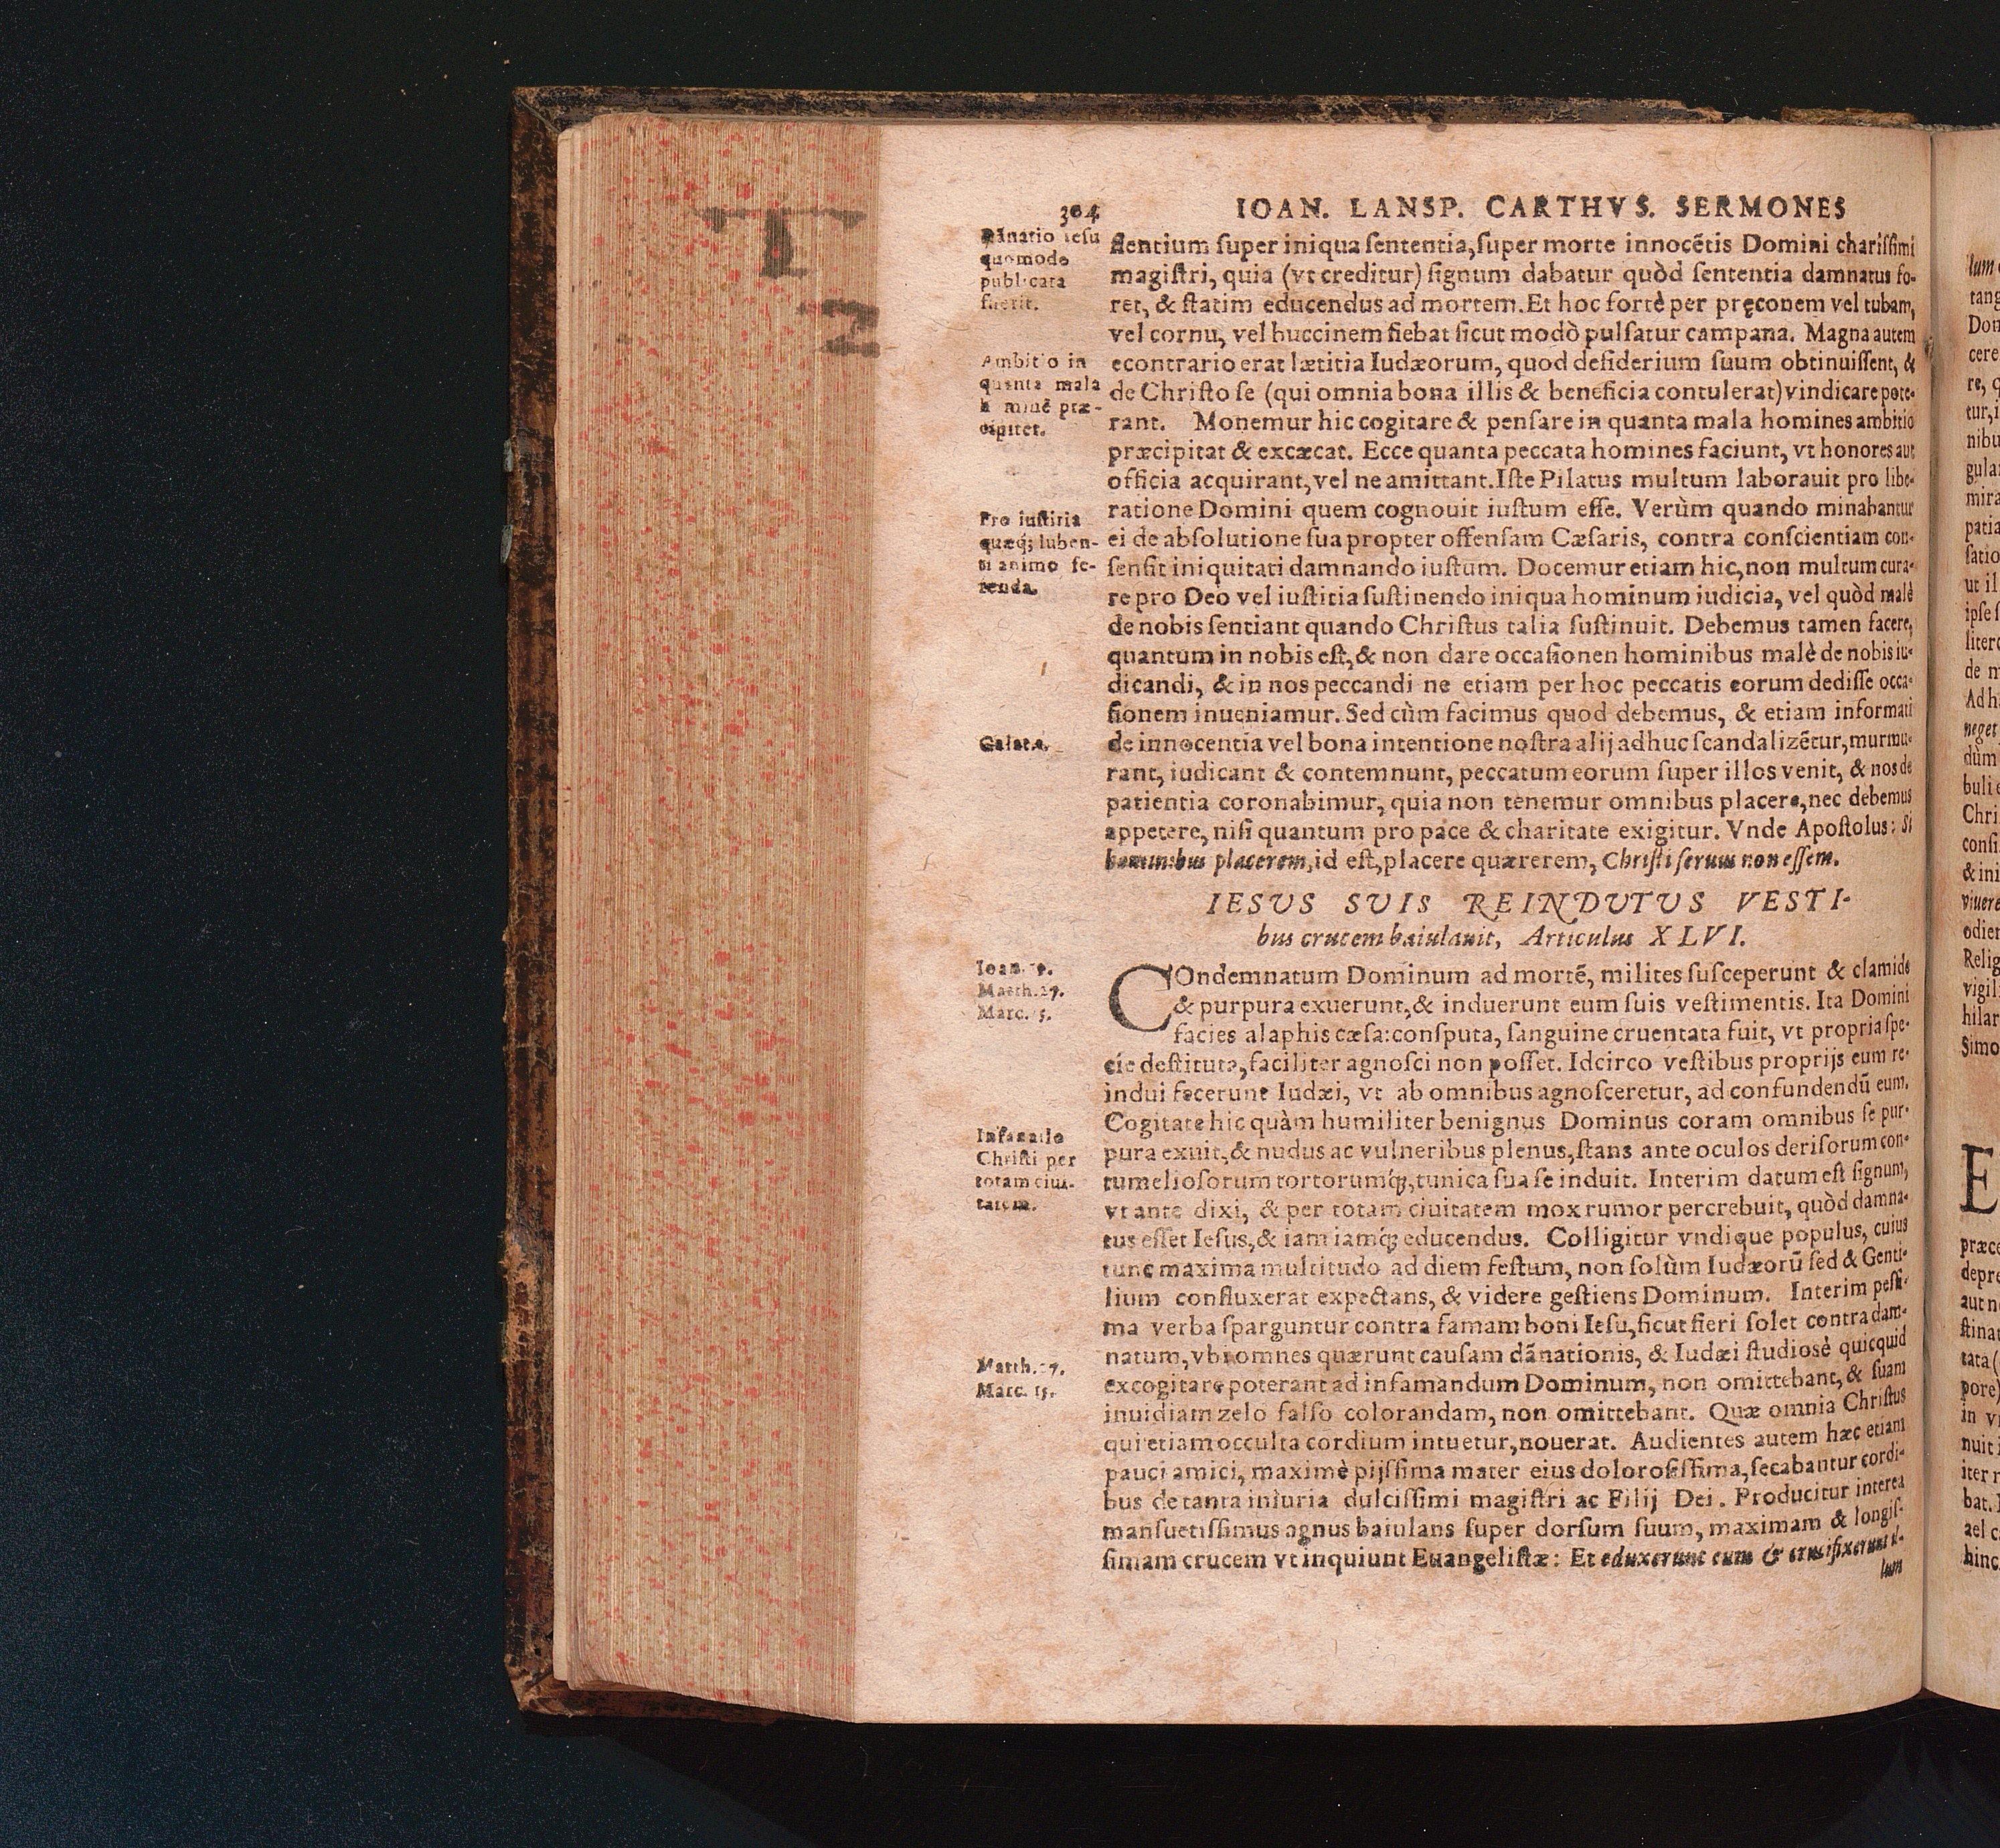 304
IOAN. LANSP. CARTHVS. SERMONES
Dãnatio Iesu
quomodo
publicata
fuerit.
Ambitio in
quanta mala
præ-
cipitet.
Pro iustitia
quæq; luben-
ti animo fe-
renda.
Galat.
flentium super iniqua sententia, super morte innocẽtis Domini charissimi
magistri, quia (vt creditur) signum dabatur quòd sententia damnatus fo-
ret, & statim educendus ad mortem. Et hoc fortè per pręconem vel tubam,
vel cornu, vel buccinem fiebat sicut modò pulsatur campana. Magna autem
econtrario erat lætitia Iudæorum, quod desiderium suum obtinuissent, &
de Christo se (qui omnia bona illis & beneficia contulerat) vindicare pote-
rant. Monemur hic cogitare & pensare in quanta mala homines ambitio
præcipitat & excæcat. Ecce quanta peccata homines faciunt, vt honores aut
officia acquirant, vel ne amittant. Iste Pilatus multum laborauit pro libe-
ratione Domini quem cognouit iustum esse. Verùm quando minabantur
ei de absolutione sua propter offensam Cæsaris, contra conscientiam con-
sensit iniquitati damnando iustum. Docemur etiam hic, non multum cura-
re pro Deo vel iustitia sustinendo iniqua hominum iudicia, vel quòd malè
de nobis sentiant quando Christus talia sustinuit. Debemus tamen facere,
quantum in nobis est, & non dare occasionen hominibus malè de nobis iu-
dicandi, & in nos peccandi ne etiam per hoc peccatis eorum dedisse occa-
sionem inueniamur. Sed cùm facimus quod debemus, & etiam informati
de innocentia vel bona intentione nostra alij adhuc scandalizẽtur, murmu-
rant, iudicant & contemnunt, peccatum eorum super illos venit, & nos de
patientia coronabimur, quia non tenemur omnibus placere, nec debemus
appetere, nisi quantum pro pace & charitate exigitur. Vnde Apostolus: Si
hominibus placerem, id est, placere quærerem, Christi seruus non essem.
IESUS SUIS REINDUTUS VESTI-
bus crucem baiulauit, Articulus XLVI.
Ioan. 19.
Matth. 27.
Marc. 15.
Infamatio
Christi per
totam ciui-
tatem.
Matth. 27.
Marc. 15.
COndemnatum Dominum ad mortẽ, milites susceperunt & clamide
& purpura exuerunt, & induerunt eum suis vestimentis. Ita Domini
facies alaphis cæsa: consputa, sanguine cruentata fuit, vt propria spe-
cie destituta, faciliter agnosci non posset. Idcirco vestibus proprijs eum re-
indui fecerunt Iudæi, vt ab omnibus agnosceretur, ad confundendũ eum.
Cogitate hic quàm humiliter benignus Dominus coram omnibus se pur-
pura exuit, & nudus ac vulneribus plenus, stans ante oculos derisorum con-
tumeliosorum tortorumq́;, tunica sua se induit. Interim datum est signum,
vt ante dixi, & per totam ciuitatem mox rumor percrebuit, quòd damna-
tus esset Iesus, & iam iamq́; educendus. Colligitur vndique populus, cuius
tunc maxima multitudo ad diem festum, non solùm Iudæorũ sed & Genti-
lium confluxerat expectans, & videre gestiens Dominum. Interim pessi-
ma verba sparguntur contra famam boni Iesu, sicut fieri solet contra dam-
natum, vbi omnes quærunt causam dãnationis, & Iudæi studiosè quicquid
excogitare poterant ad infamandum Dominum, non omittebant, & suam
inuidiam zelo falso colorandam, non omittebant. Quæ omnia Christus
qui etiam occulta cordium intuetur, nouerat. Audientes autem hæc etiam
pauci amici, maximè pijssima mater eius dolorosissima, secabantur cordi-
bus de tanta iniuria dulcissimi magistri ac Filij Dei. Producitur interea
mansuetissimus agnus baiulans super dorsum suum, maximam & longis-
simam crucem vt inquiunt Euangelistæ: Et eduxerunt eum & crucifixerunt il-
lum